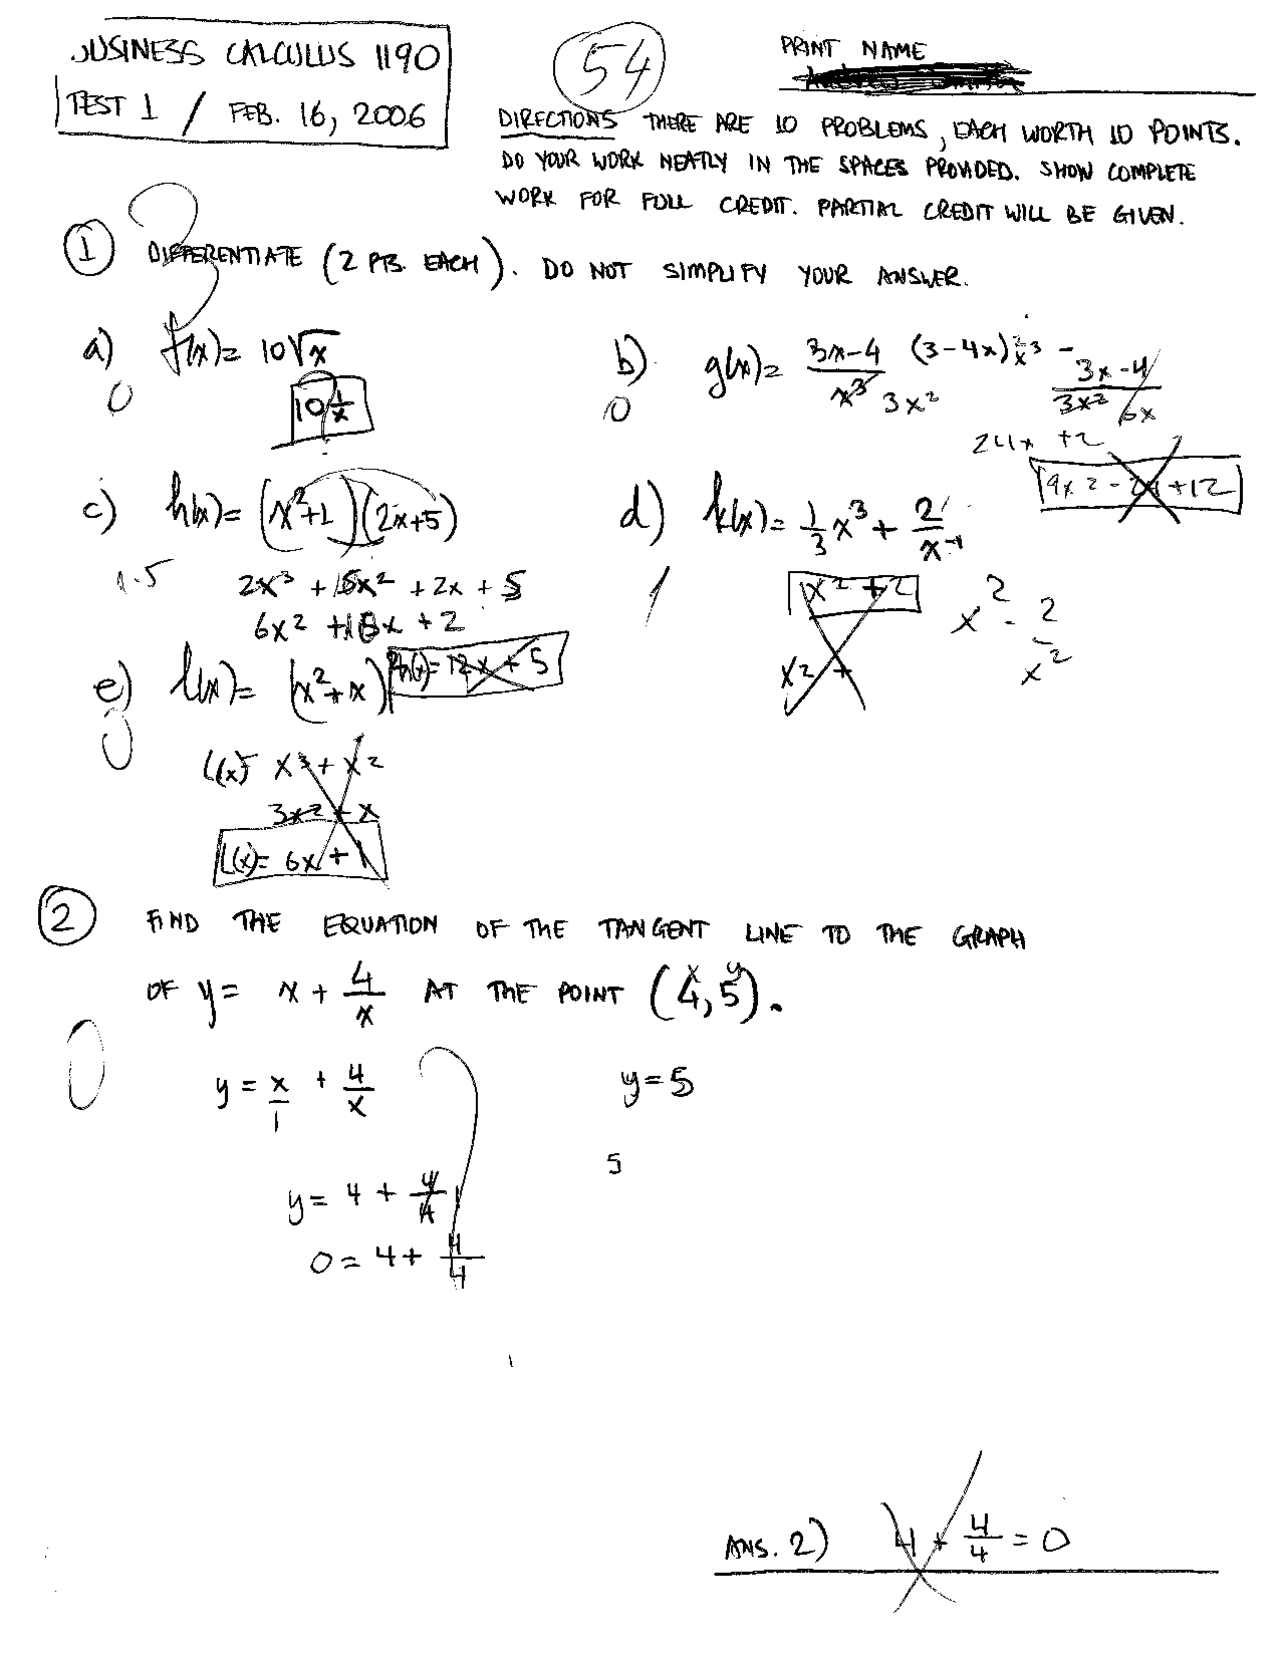 BUSINESS CALCULUS 1190
TEST 1 / FEB. 16, 2006
54
PRINT NAME
DIRECTIONS THERE ARE 10 PROBLEMS, EACH WORTH 10 POINTS.
DO YOUR WORK NEATLY IN THE SPACES PROVIDED. SHOW COMPLETE
WORK FOR FULL CREDIT. PARTIAL CREDIT WILL BE GIVEN.
1 DIFFERENTIATE (2 PTS. EACH). DO NOT SIMPLIFY YOUR ANSWER.
a) f(x) = 10√x
0
10 1/x
b) g(x) = (3x-4)/x³ (3-4x)
0
3x²
3x-4
3x² 6x
9x2 - +12
c) h(x) = (x²+1)(2x+5)
1.5
2x³ + 5x² + 2x + 5
6x² + x + 2
h(x) = 12x + 5
d) k(x) = 1/3 x³ + 2/x
1
x² + 2
x² - 2/x²
x² +
e) l(x) = (x²+x)
0
L(x) = x³ + x²
3x² + x
L(x) = 6x + 1
2 FIND THE EQUATION OF THE TANGENT LINE TO THE GRAPH
OF y = x + 4/x AT THE POINT (4,5).
x y
0
y = x/1 + 4/x
y = 5
5
y = 4 + 4/4
0 = 4 + 4/4
ANS. 2) 4 + 4/4 = 0